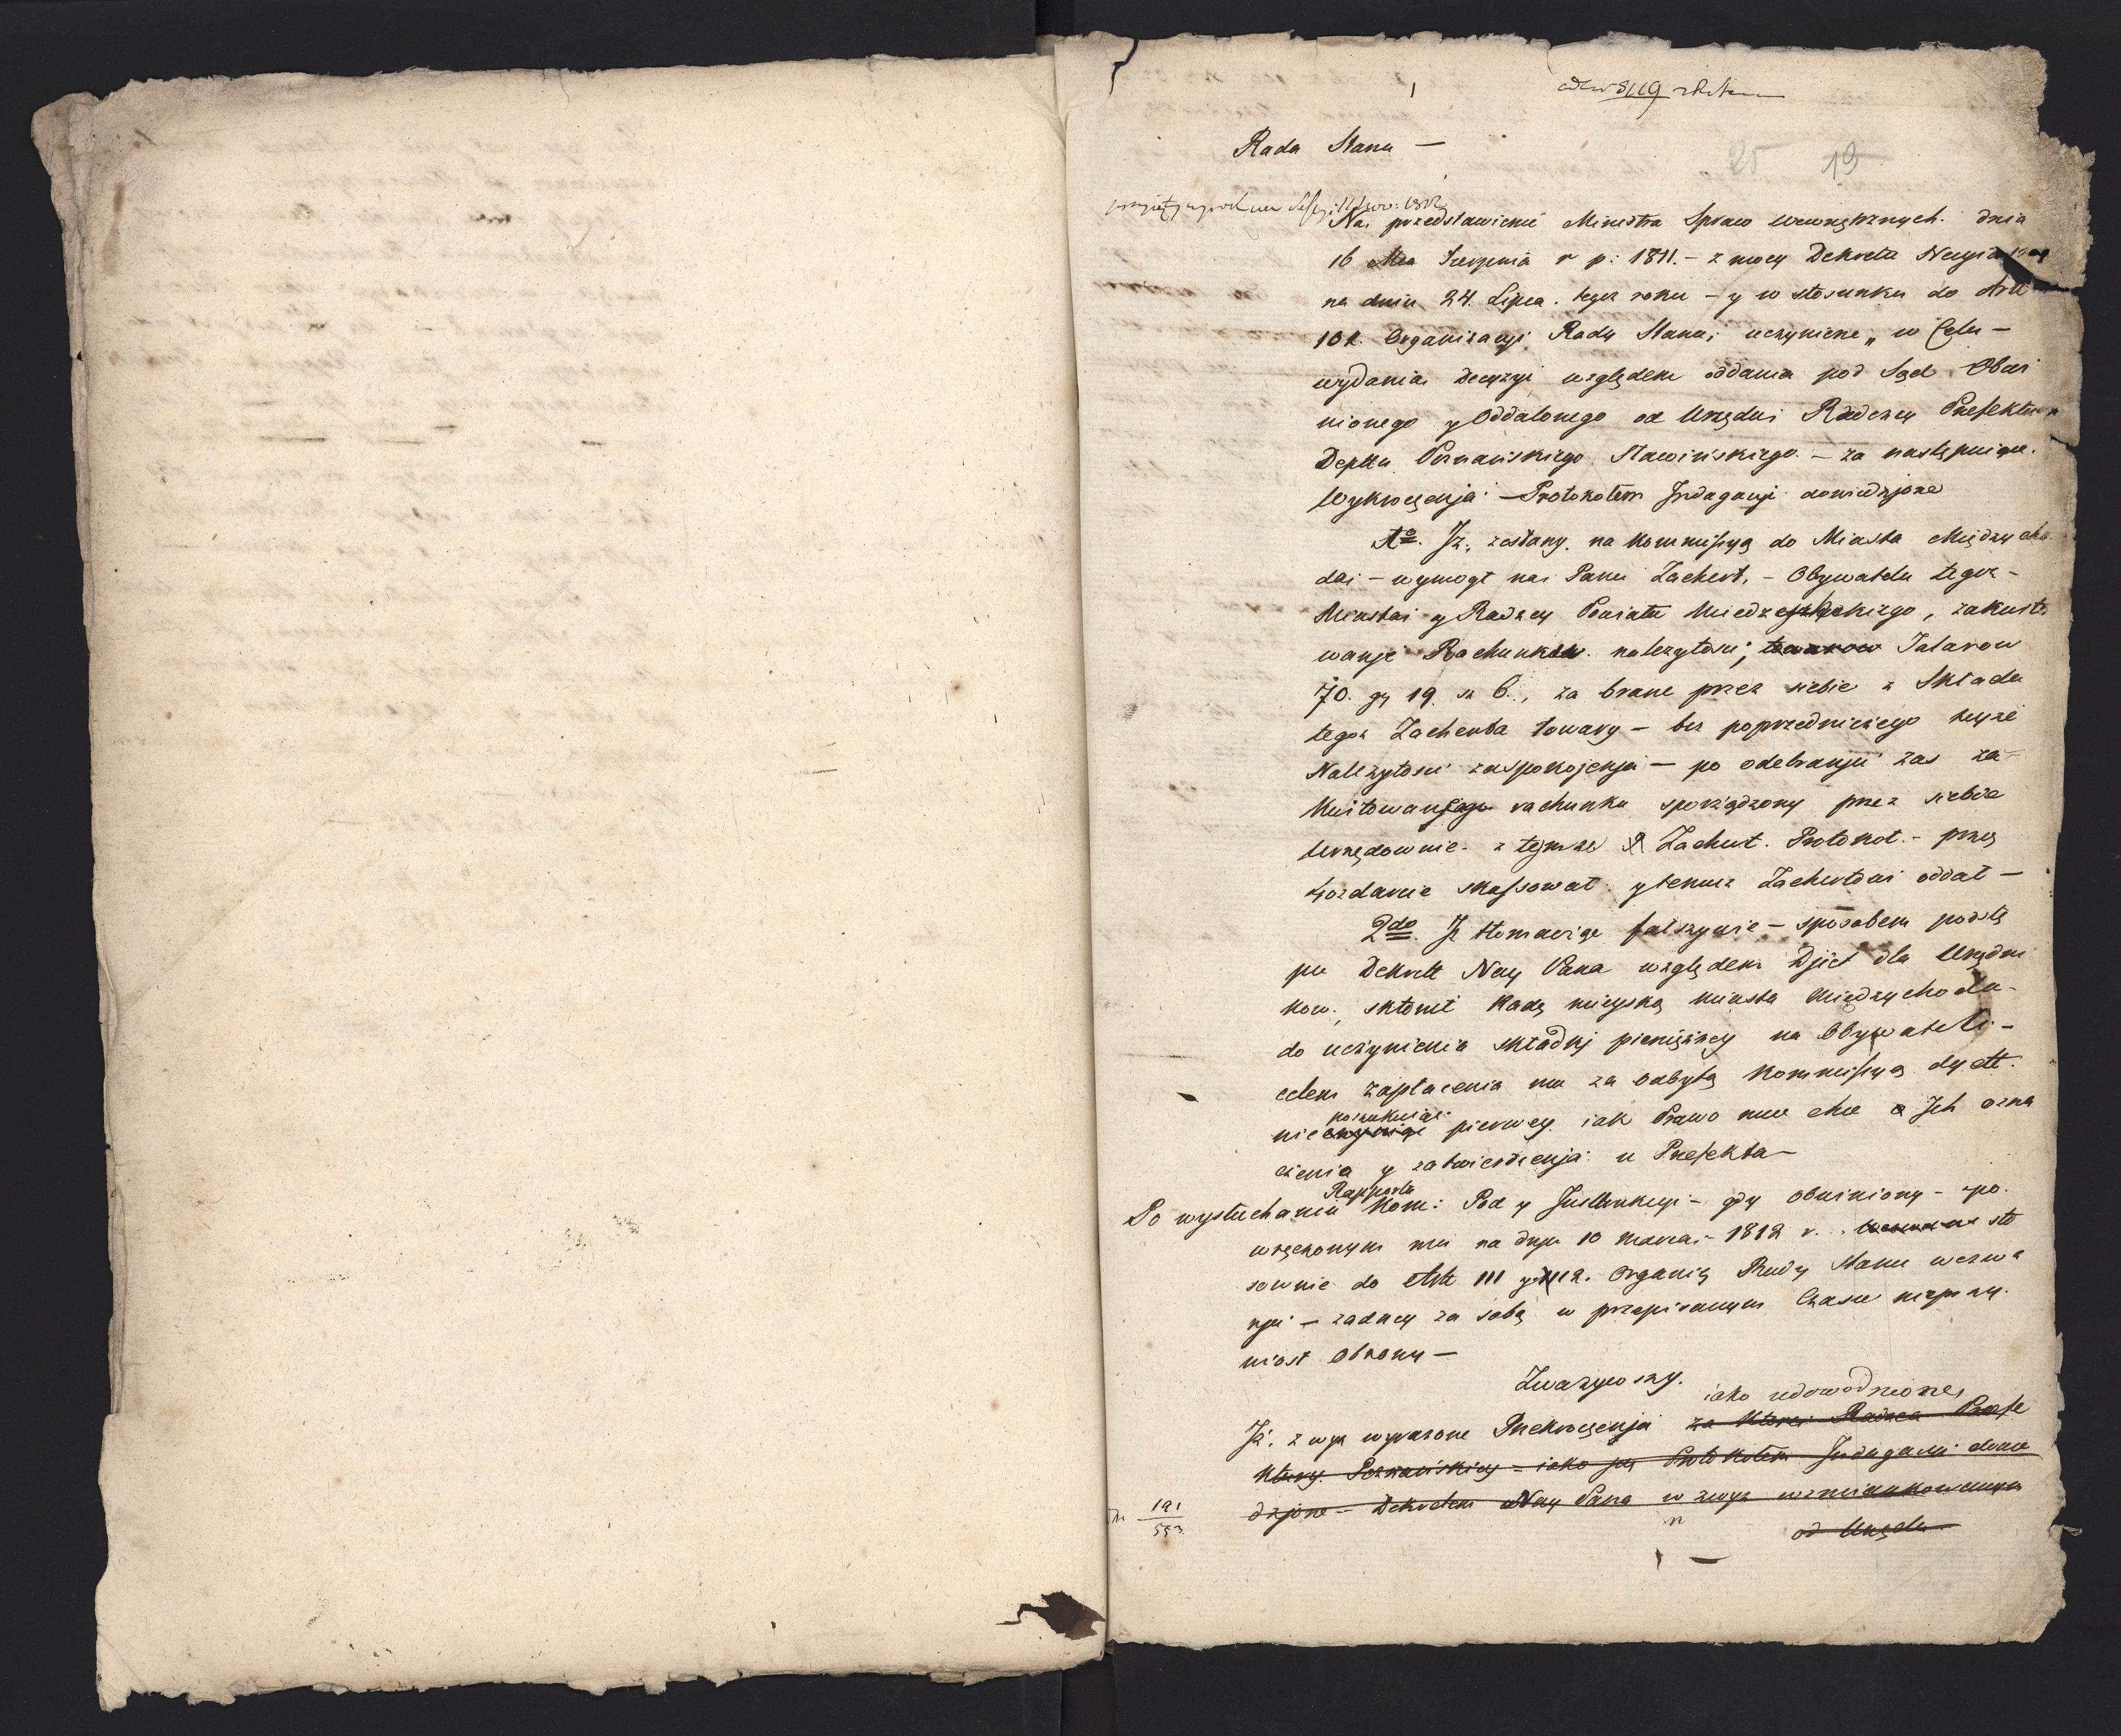 Rada Stanu —
19
Na przedstawienie Ministra Spraw Wewnętrznych dnia
16 Mca Sierpnia r p: 1811. – z mocy Dekretu
na dniu 24. Lipca. tegoż roku – y w stosunku do Artt
Organizacyi Rady Stanu, uczynione „ w Celu –
wydania decyzyi względem oddania pod Sąd Obwi
nionego y Oddalonego od Urzędu Radzcy Prefektury
Depttu Poznańskiego – za następuiące
Wykroczenja Protokołem Indagacyi dowiedzjone
1o. Jż, zesłany na Kommissyą do Miasta Międzycho
da – wymogł na Panu Zachert, – Obywatelu tegoż –
Miasta y Radzcy Powiatu zakwito
wanje Rachunków należytosci, towarow Talarow
70. gr 19 sz 6., za brane przez siebie z Składu
tegoż Zacherta towary – bez poprzedniczego teyże
Należytosci zaspokojenja — po odebranju zas za-
kwitowanego rachunku sporządzony przez siebie
Urzędownie z tymże P Zachert. Protokoł. – przez
skassował y tenuż Zachertowi oddał —
2do. Jż tłomacząc fałszywie – sposobem podstę
pu Dekrett Nay Pana względem Djiet dla Urzędni
kow., skłonił Radę mieyską miasta Międzychodu
do uczynienia składki pieniężney na Obywateli –
celem zapłacenia mu za odbytą Kommissyą dyett.
poszukuiąc
nie czyniąc pierwey jak Prawo mieć chce Jch ozna
czenia y zatwierdzenja u Prefekta —
Rapportu
Po wysłuchaniu Kom: Pod y Instrukcyi – gdy obwiniony – po
wręczonym mu na dnju 10 Marca – 1812 r. sto
sownie do Artt 111 y 112. Organiz Rady Stanu wezwa
nju – żadney za sobą w przepisanym Czasie nieprzy
niosł Obrony —
Zważywszy.
iako udowodnione,
Jż. z wyż wyrażone Przekroczenja za które Radzca Prefe
ktury Poznańskiey – iako Protokołem Indagacyi dowie
dzjone – Dekretem Nay Pana w zwyż wzmiankowanym
od Urzędu
191